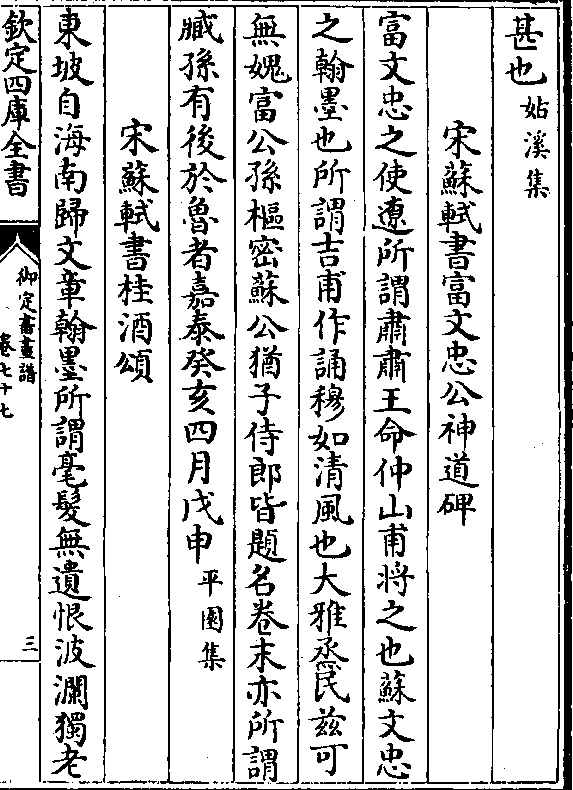 甚也姑溪集
宋蘇軾書富文忠公神道碑
富文忠之使遼所謂肅肅王命仲山甫將之也蘇文忠
之翰墨也所謂吉甫作誦穆如清風也大雅烝民兹可
無媿富公孫樞密蘇公猶子侍郎皆題名卷末亦所謂
臧孫有後於魯者嘉泰癸亥四月戊申平園集
宋蘇軾書桂酒頌
東坡自海南歸文章翰墨所謂毫髮無遺恨波瀾獨老
欽定四庫全書
御定書畫譜
卷七十七
三